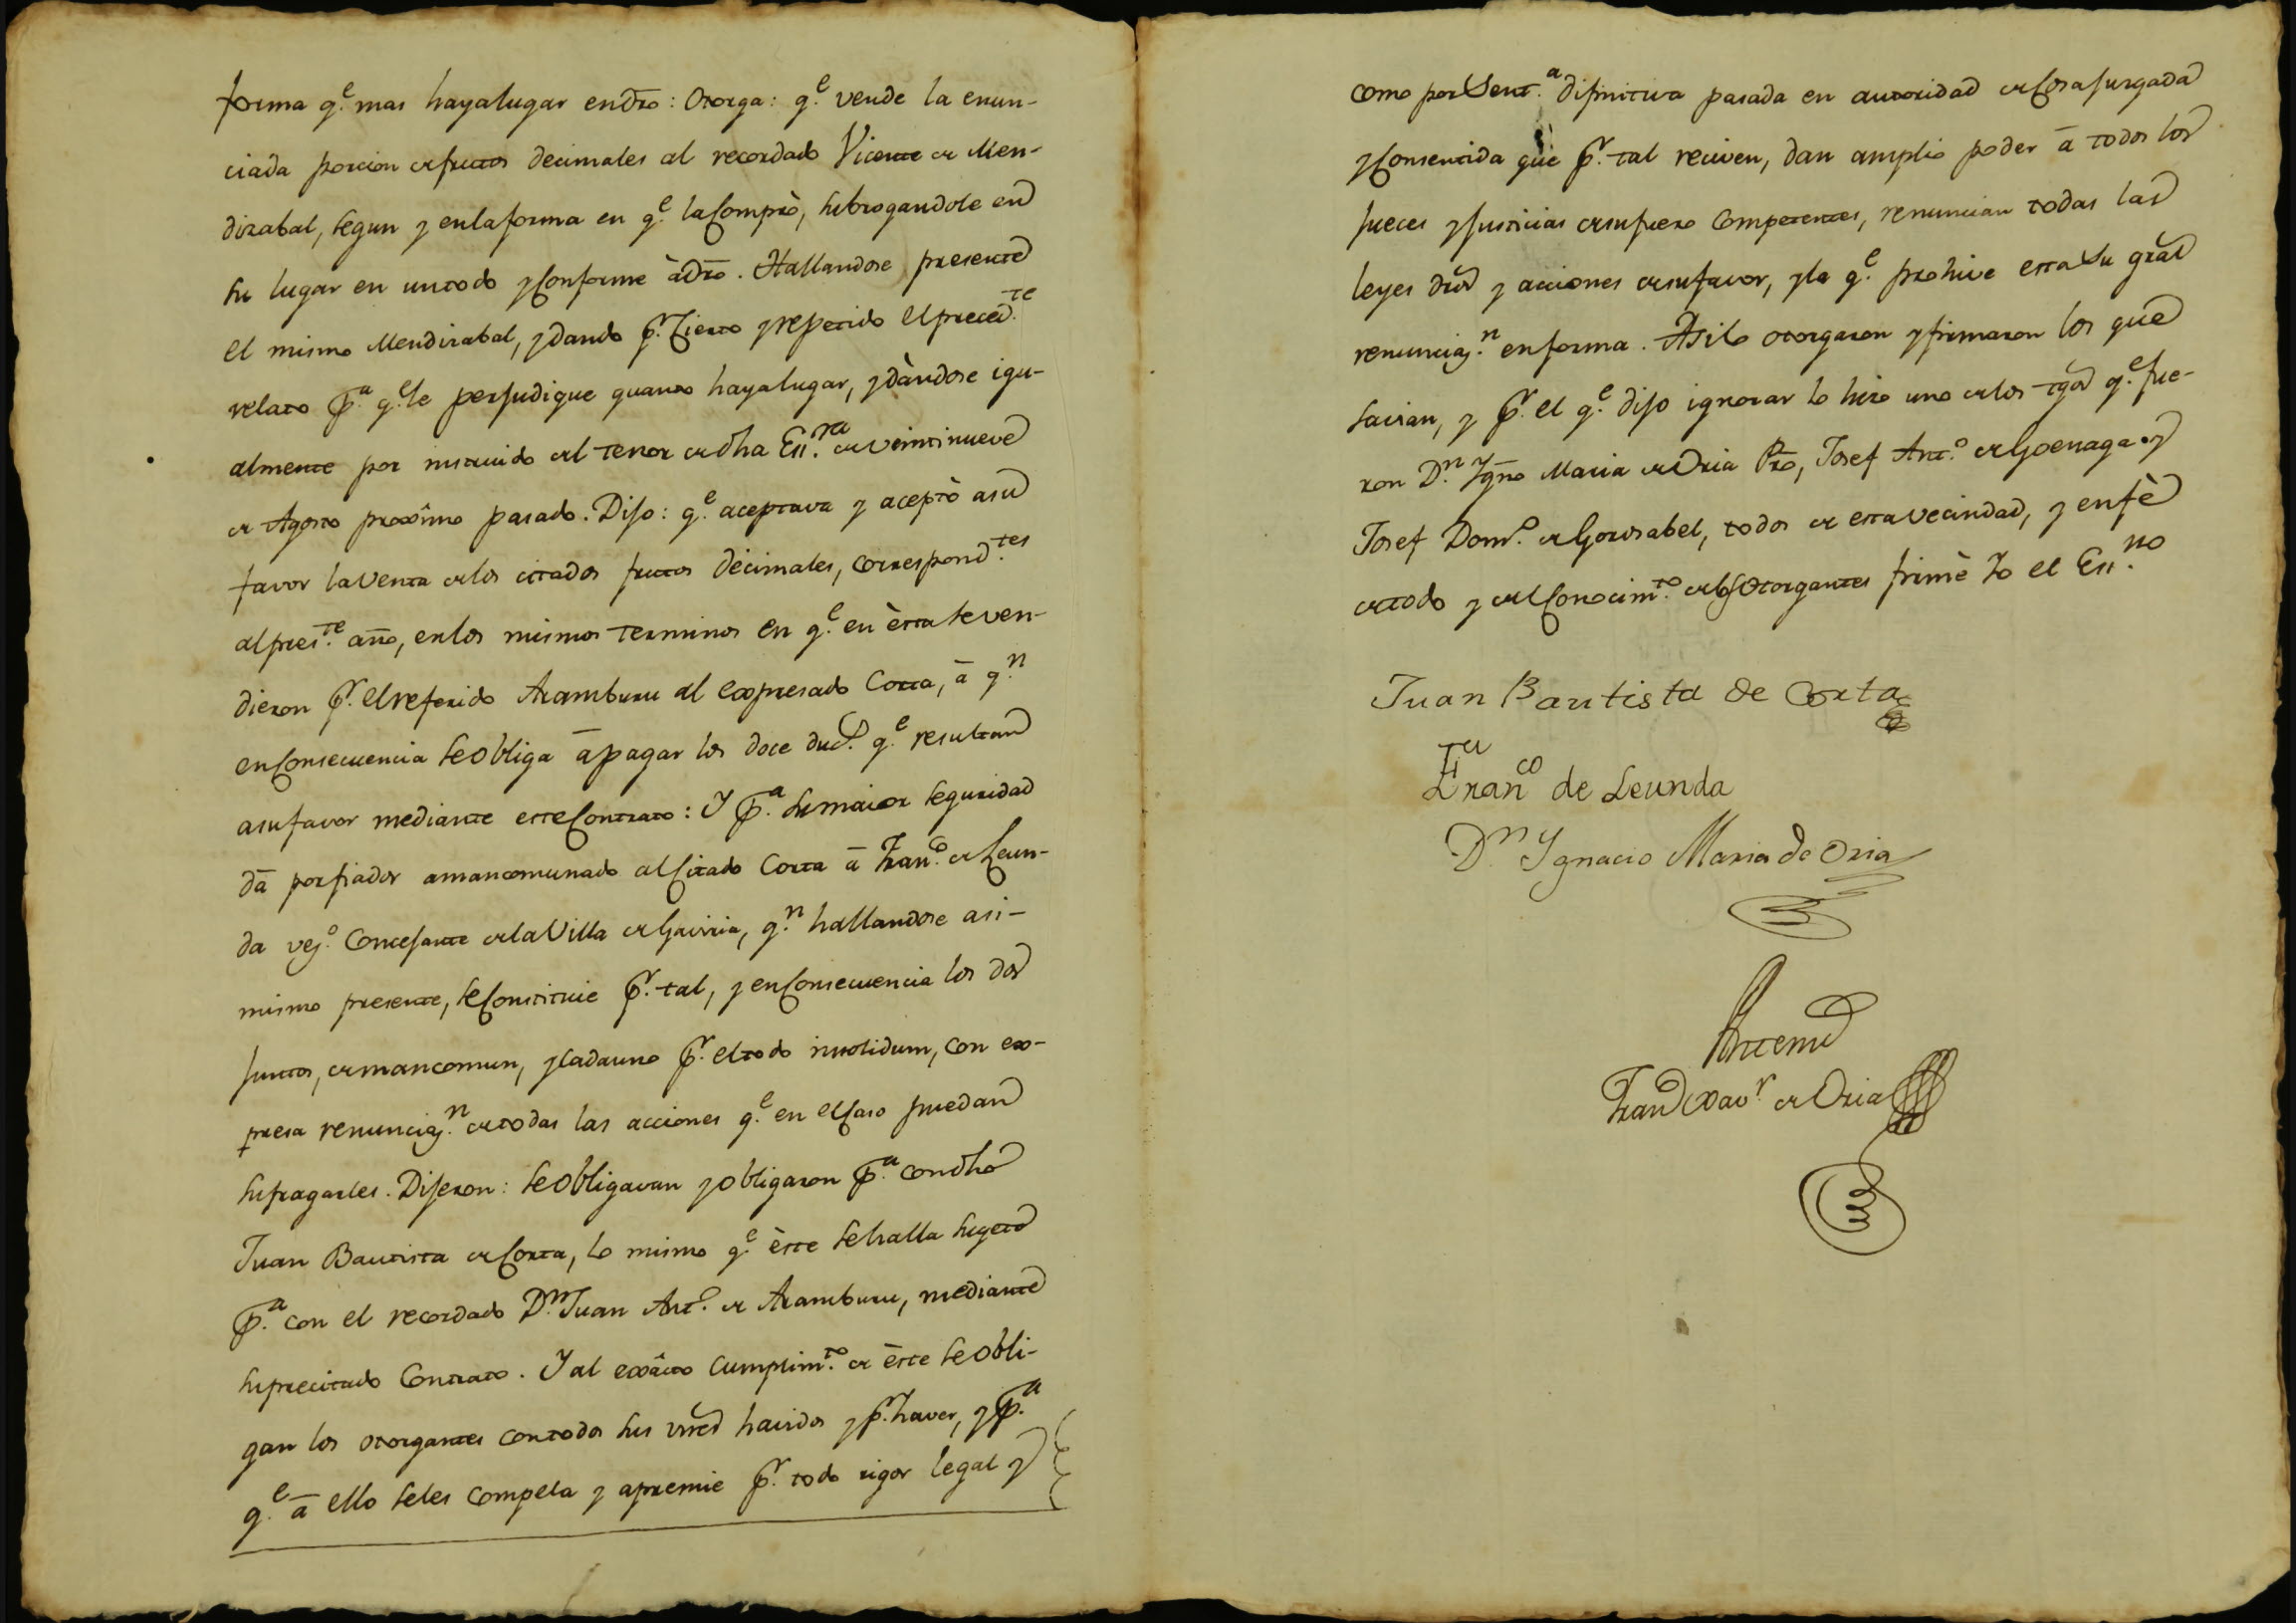 forma q.e mas haya lugar en dro: Otorga: q.e vende la enun-
ciada porcion de frutos decimales al recordado Vicente de Men-
dizabal, segun y en la forma en q.e la Comprò, subrogandole en
su lugar en un todo y Conforme à dro. Hallandose presente
el mismo Mendizabal, y dando p.r Cierto y repetido el preced.te
relato p.a q.e le perjudique quanto haya lugar, y dàndose igu-
almente por instruido del tenor de dha Ess.ra de veintinueve
de Agosto proxîmo pasado. Dijo: q.e aceptava y aceptò a su
favor la Venta de los citados frutos decimales, correspond.tes
al pres.te año, en los mismos terminos en q.e en èsta se ven-
dieron p.r el referido Aramburu al expresado Corta, à q.n
en Consecuencia se obliga à pagar los doce duc.s q.e resultan
a su favor mediante este Contrato: Y p.a su maior seguridad
dà por fiador amancomunado al Citado Corta à Fran.co de Leun-
da vez.o Concejante de la Villa de Gaviria, q.n hallandose asi-
mismo presente, se Constituie p.r tal, y en Consecuencia los dos
juntos, de mancomun, y Cada uno p.r el todo insolidum, con ex-
presa renunciaz.n de todas las acciones q.e en el Caso puedan
sufragarles. Dijeron: se obligavan y obligaron p.a con dho
Juan Bautista de Corta, lo mismo q.e èste se halla sugeto
p.a con el recordado D.n Juan Ant.o de Aramburu, mediante
su precitado Contrato. Y al exâcto Cumplim.to de èste se obli-
gan los otorgantes con todos sus vnes havidos y p.r haver, y p.a
q.e à ello se les compela y apremie p.r todo rigor legal y
como por Sent.a difinitiva pasada en autoridad de Cosa Jurgada
y Consentida que p.r tal reciven, dan amplio poder à todos los
Jueces y Justicias de su fuero Competentes, renuncian todas las
leyes dros y acciones de su favor, y la q.e prohive esta Su gral
renunciaz.n en forma. Asi lo otorgaron y firmaron los que
savian, y p.r el q.e dijo ignorar lo hizo uno de los tgos q.e fue-
ron D.n Ygno Maria de Oria Pro, Josef Ant.o de Goenaga y
Josef Dom.o de Gorosabel, todos de esta vecindad, y en fè
de todo y del Conocim.to de los Otorgantes firmè Yo el Ess.no
Juan Bautista de Corta
Fran.co de Leunda
D.n Ygnacio Maria de Oria
Ante mi
Fran Xav.r de Oria